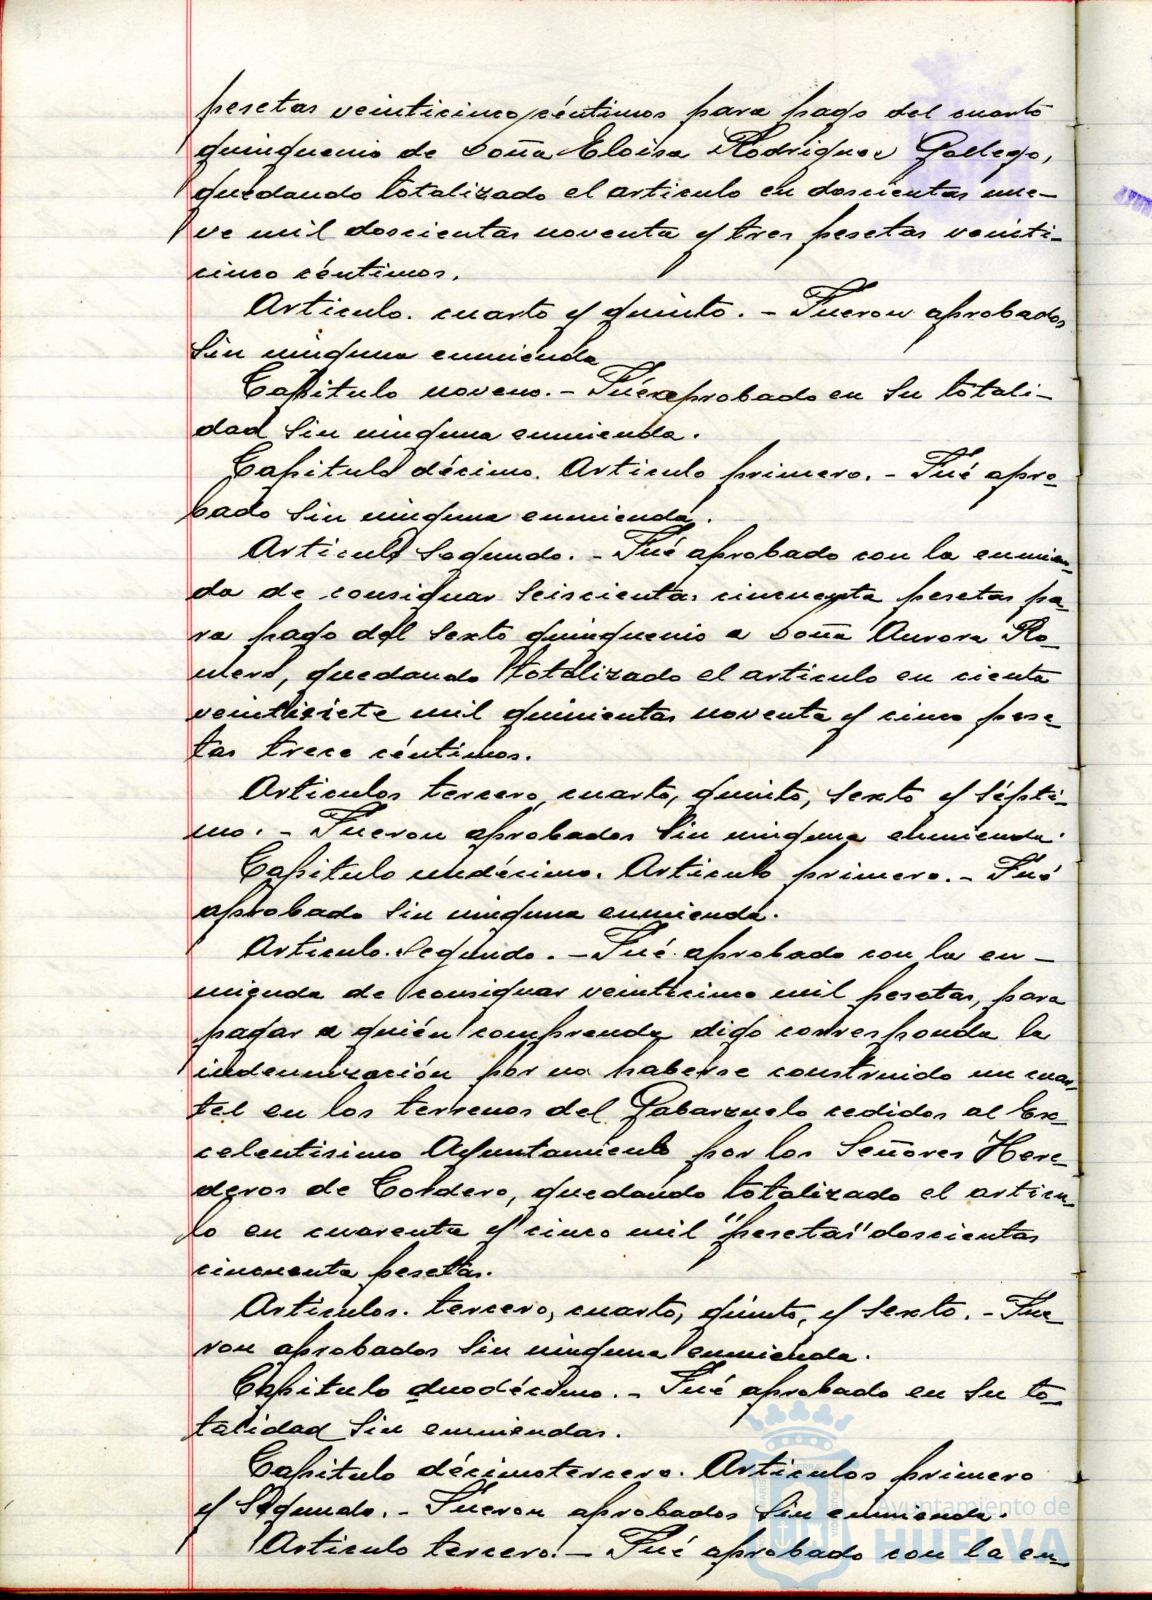 pesetas veinticinco céntimos para pago del cuarto
quinquenio de Doña Eloisa Rodriguez Gallego,
quedando totalizado el articulo en doscientas nue-
ve mil doscientas noventa y tres pesetas veinti-
cinco céntimos.
Articulo. cuarto y quinto. - Fueron aprobados
sin ninguna enmienda
Capitulo noveno. - Fué aprobado en su totali-
dad sin ninguna enmienda.
Capitulo décimo. Articulo primero. - Fué apro-
bado sin ninguna enmienda.
Articulo segundo. - Fué aprobado con la enmien-
da de consignar seiscientas cincuenta pesetas pa-
ra pago del sexto quinquenio a Doña Aurora Ro-
mero, quedando totalizado el articulo en ciento
veintisiete mil quinientas noventa y cinco pese-
tas trece céntimos.
Articulos tercero, cuarto, quinto, sexto y sépti-
mo. - Fueron aprobados sin ninguna enmienda.
Capitulo undécimo. Articulo primero. - Fué
aprobado sin ninguna enmienda.
Articulo. segundo. - Fué aprobado con la en-
mienda de consignar veinticinco mil pesetas, para
pagar a quién comprenda digo corresponda la
indemnización por no haberse construido un cuar-
tel en los terrenos del Gabarzuelo cedidos al Ex-
celentisimo Ayuntamiento por los Señores Here-
deros de Cordero, quedando totalizado el articu-
lo en cuarenta y cinco mil "pesetas" doscientas
cincuenta pesetas.
Articulos. tercero, cuarto, quinto, y sexto. - Fue-
ron aprobados sin ninguna enmienda.
Capitulo duodécimo. - Fué aprobado en su to-
talidad sin enmiendas.
Capitulo décimotercero. Articulos primero
y segundo. - Fueron aprobados sin enmienda.
Articulo tercero. - Fué aprobado con la en-
Ayuntamiento de
HUELVA